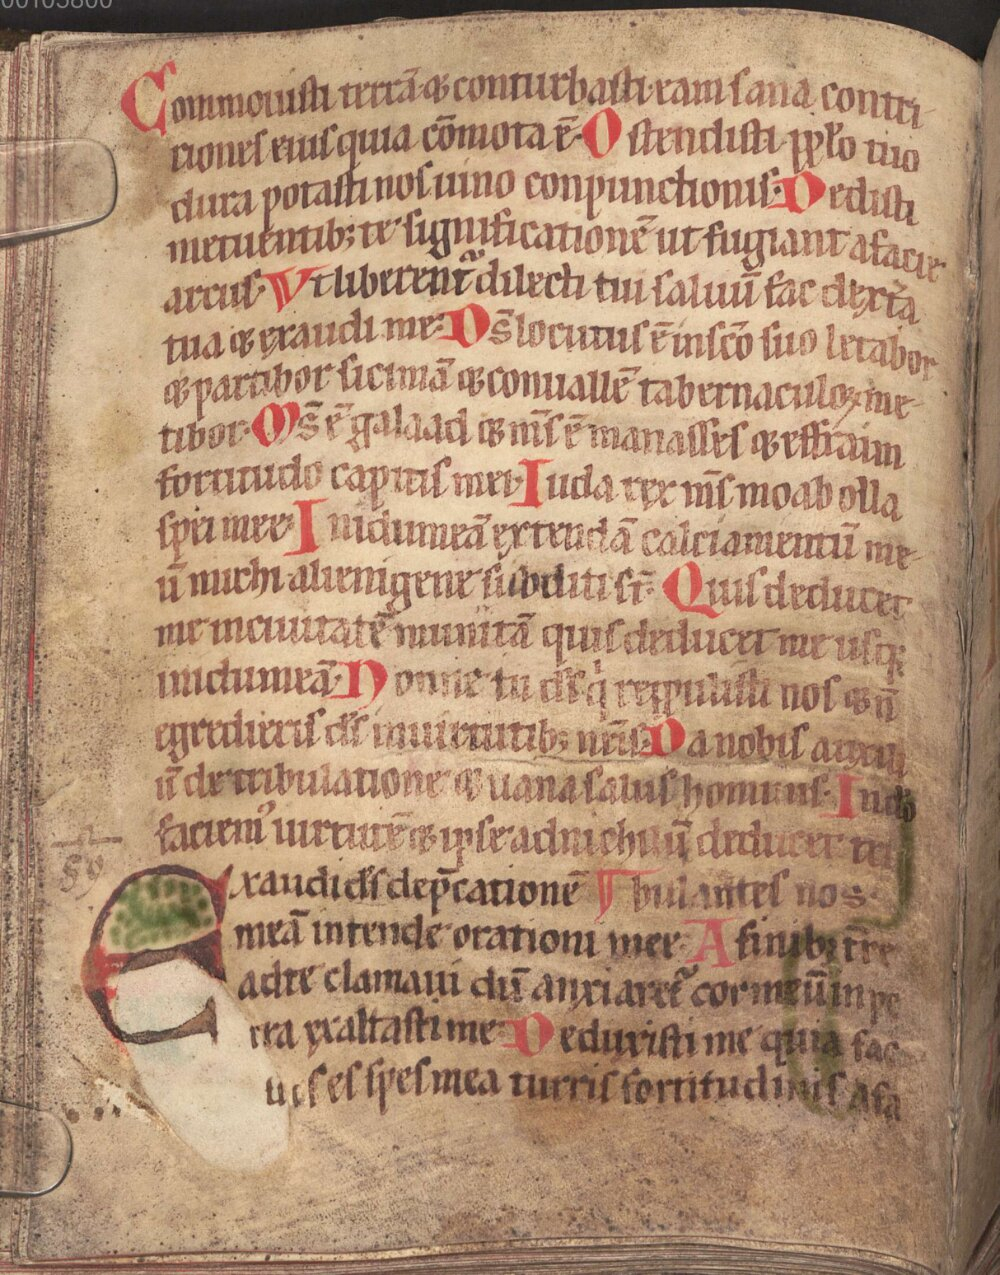 00105800
Commouisti terrā & conturbasti eam sana contri
tiones eius quia cōmota ē Ostendisti pp̄lo tuo
dura potasti nos uino conpunctionis Dedisti
metuentib; te significationē ut fugiant a facie
arcus Vt liberent᷑ dilecti tui saluū fac dext̄a
tua & exaudi me Ds̄ locutus ē in sc̄o suo letabor
& partibor sicimā & conuallē tabernaculoꝝ me
tibor Ms̄ ē galaad & ms̄ ē manasses & effraim
fortitudo capitis mei Iuda rex ms̄ moab olla
spei mee In idumeā extendā calciamentū me
ū michi alienigene subditi st̄ Quis deducet
me in ciuitatē munitā quis deducet me usq;
in idumeā Nonne tu ds̄ q̇ reppulisti nos & ñ
egredieris ds̄ in uirtutib; nr̄is Da nobis auxili
ū de tribulatione & uana salus hominis In dō
faciem᷒ uirtutē & ipse ad nichilū deducet tri
59
Exaudi ds̄ dep̄cationē bulantes nos
meā intende orationi mee A finib; tr̄re
ad te clamaui dū anxiaret᷑ cor meū in pe
tra exaltasti me Deduxisti me quia fac
tus es spes mea turris fortitudinis a fa